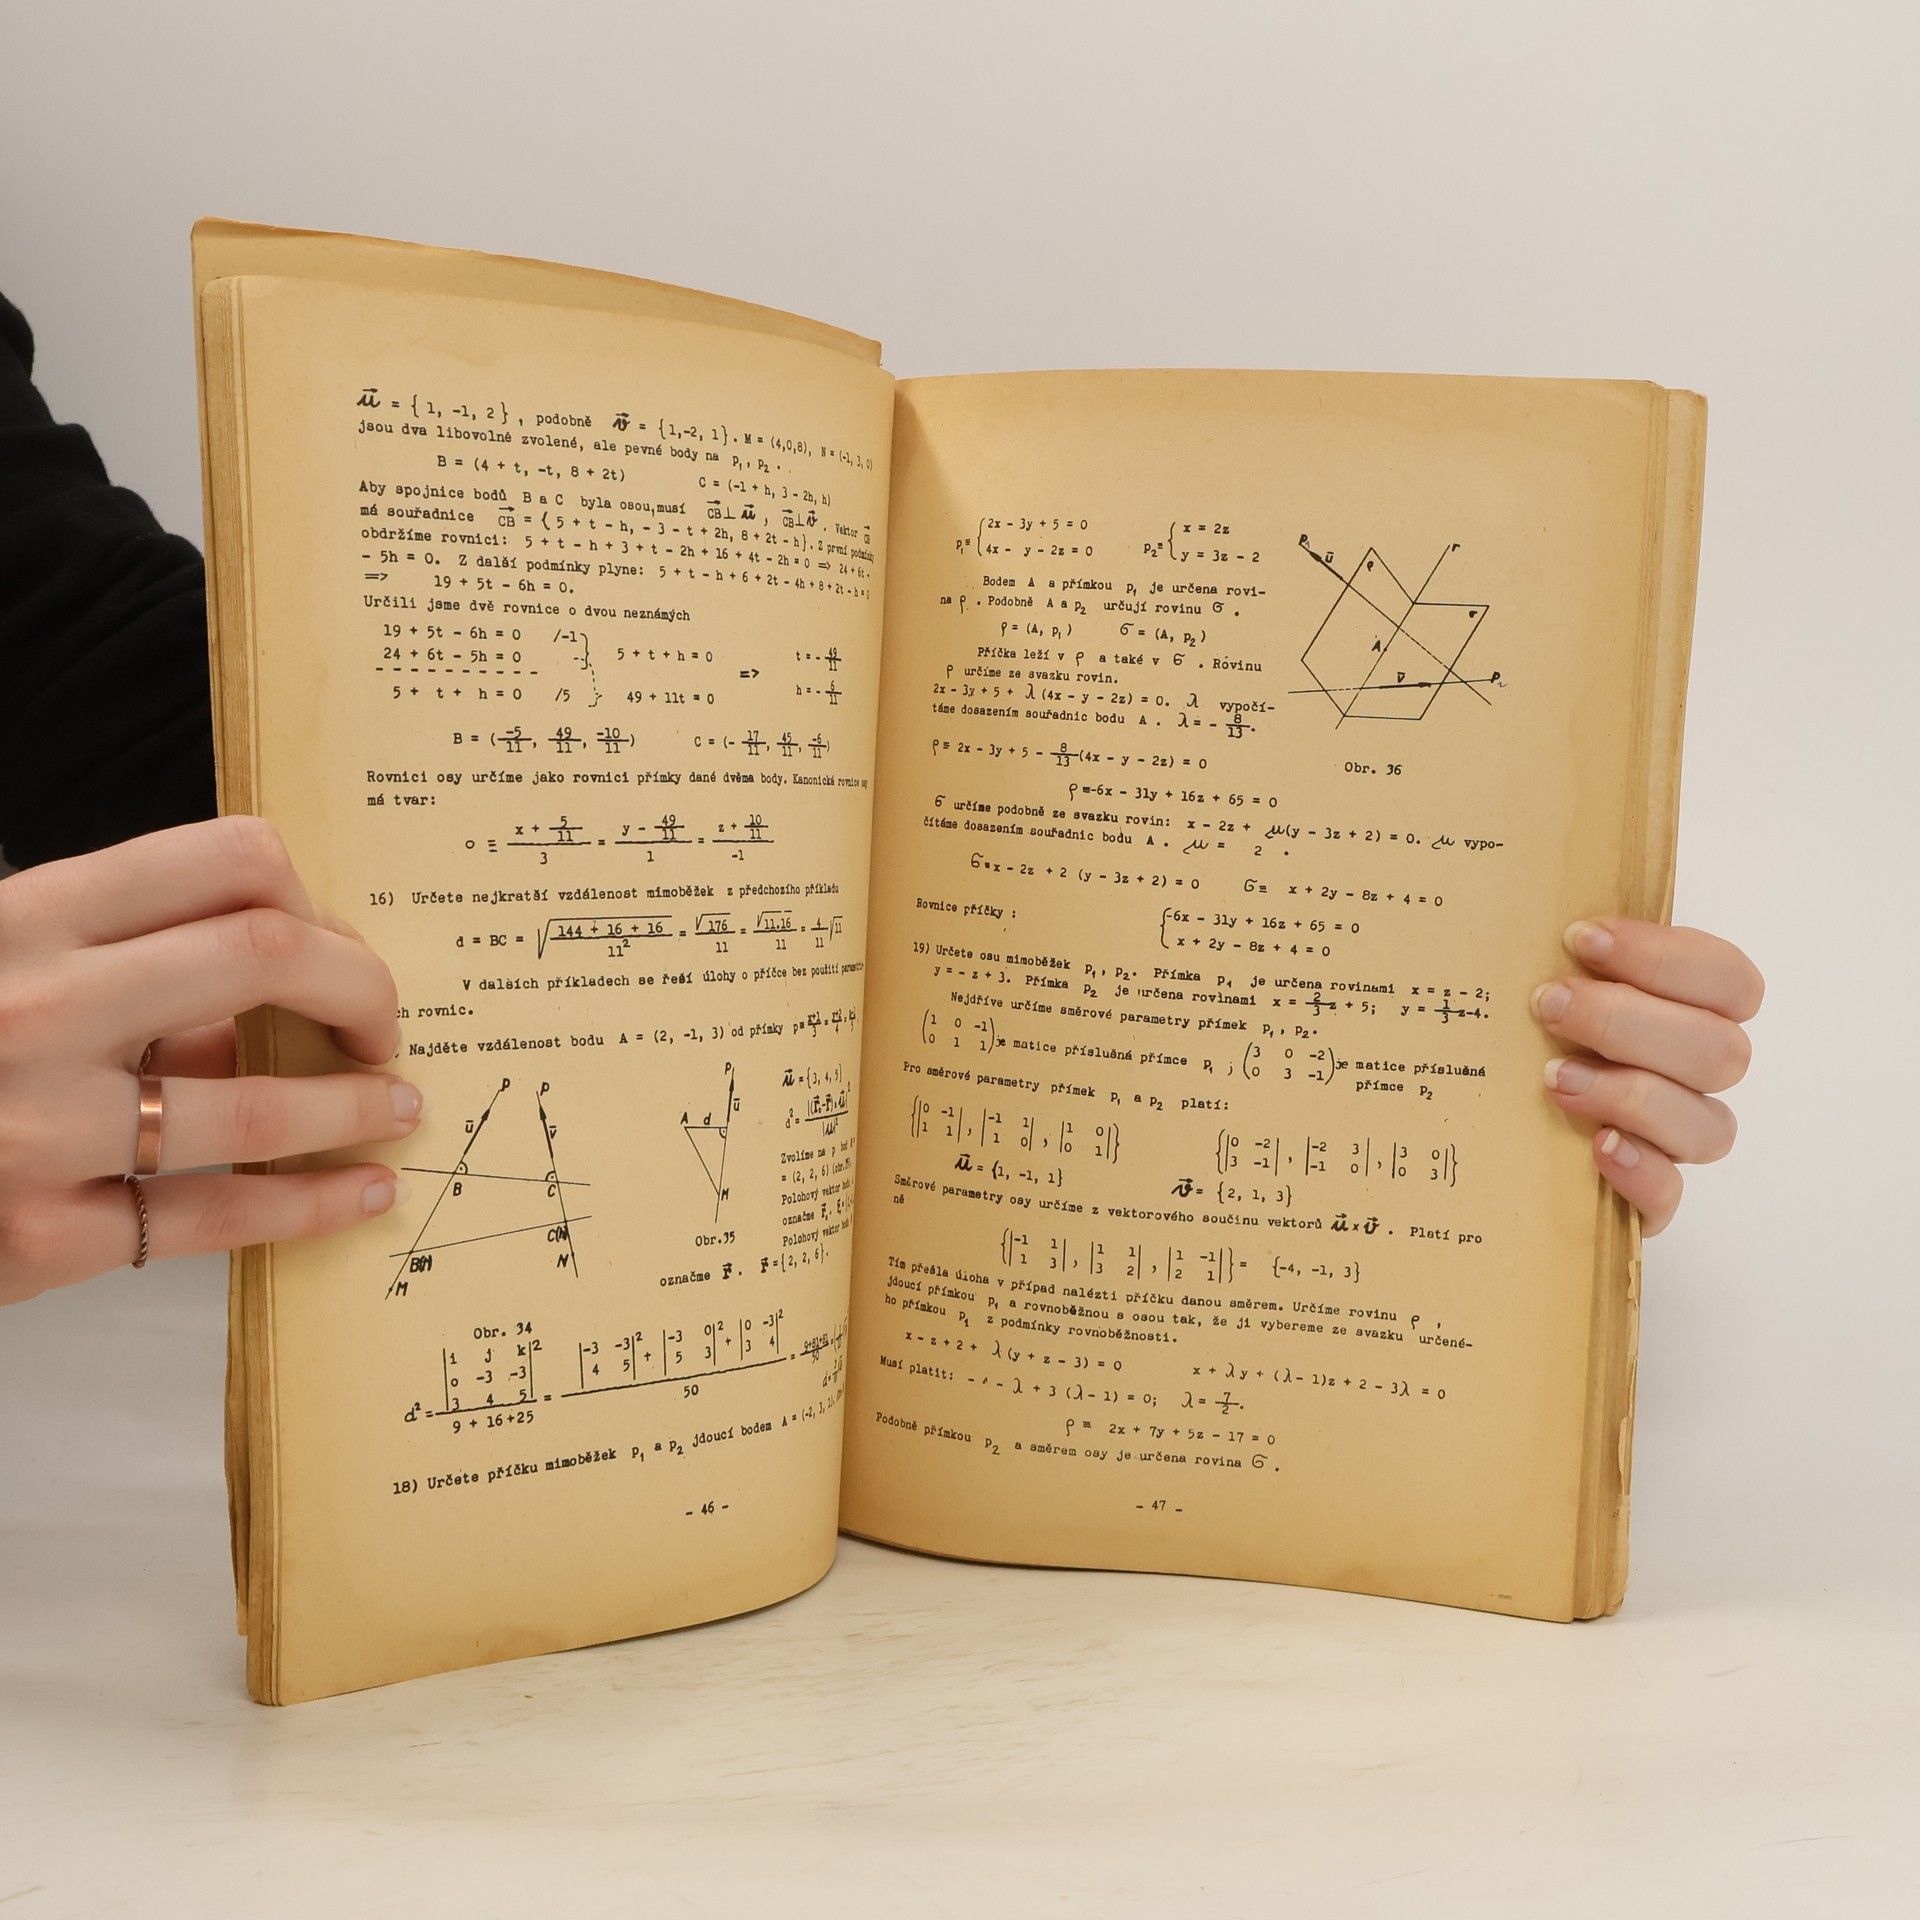 u⃗ = { 1, -1, 2 } , podobně v⃗ = {1,-2, 1}. M = (4,0,8), N = (-1, 3, 0)
jsou dva libovolně zvolené, ale pevné body na p₁, p₂ .
B = (4 + t, -t, 8 + 2t) C = (-1 + h, 3 - 2h, h)
Aby spojnice bodů B a C byla osou, musí CB⃗ ⊥ u⃗ , CB⃗ ⊥ v⃗ . Vektor CB⃗
má souřadnice CB⃗ = { 5 + t - h, - 3 - t + 2h, 8 + 2t - h}. Z první podmínky
obdržíme rovnici: 5 + t - h + 3 + t - 2h + 16 + 4t - 2h = 0 => 24 + 6t -
- 5h = 0. Z další podmínky plyne: 5 + t - h + 6 + 2t - 4h + 8 + 2t - h = 0
=> 19 + 5t - 6h = 0.
Určili jsme dvě rovnice o dvou neznámých
19 + 5t - 6h = 0 /-1
24 + 6t - 5h = 0 5 + t + h = 0 => t = - 49/11
5 + t + h = 0 /5 49 + 11t = 0 h = - 6/11
B = (-5/11, 49/11, -10/11) C = (- 17/11, 45/11, -6/11)
Rovnici osy určíme jako rovnici přímky dané dvěma body. Kanonická rovnice osy
má tvar:
o ≡ (x + 5/11)/3 = (y - 49/11)/1 = (z + 10/11)/-1
16) Určete nejkratší vzdálenost mimoběžek z předchozího příkladu
d = BC = √((144 + 16 + 16)/11²) = √176/11 = √11.16/11 = 4/11 √11
V dalších příkladech se řeší úlohy o příčce bez použití
rovnic.
Najděte vzdálenost bodu A = (2, -1, 3) od přímky
p p
u⃗ v⃗
B C
B(M) C(N)
M N
Obr. 34
p
u⃗
A d
M
Obr.35
u⃗ = {3, 4, 5}
Zvolíme na p bod
= (2, 2, 6)
Polohový vektor
označme
Polohový vektor
označme r⃗ . r⃗ = {2, 2, 6}.
d² = |i j k; 0 -3 -3; 3 4 5|² / (9 + 16 +25) = (|-3 -3; 4 5|² + |-3 0; 5 3|² + |0 -3; 3 4|²) / 50
18) Určete příčku mimoběžek p₁ a p₂ jdoucí bodem
- 46 -
p₁≡ {2x - 3y + 5 = 0 p₂≡ {x = 2z
4x - y - 2z = 0 y = 3z - 2
Bodem A a přímkou p₁ je určena rovi-
na ρ . Podobně A a p₂ určují rovinu σ .
ρ = (A, p₁) σ = (A, p₂)
Příčka leží v ρ a také v σ . Rovinu
ρ určíme ze svazku rovin.
2x - 3y + 5 + λ (4x - y - 2z) = 0. λ vypočí-
táme dosazením souřadnic bodu A . λ = - 8/13.
ρ ≡ 2x - 3y + 5 - 8/13 (4x - y - 2z) = 0
p₁ u⃗ ρ r
σ
A
v⃗ p₂
Obr. 36
ρ ≡-6x - 31y + 16z + 65 = 0
σ určíme podobně ze svazku rovin: x - 2z + μ(y - 3z + 2) = 0. μ vypo-
čítáme dosazením souřadnic bodu A . μ = 2 .
σ≡x - 2z + 2 (y - 3z + 2) = 0 σ≡ x + 2y - 8z + 4 = 0
Rovnice příčky : {-6x - 31y + 16z + 65 = 0
x + 2y - 8z + 4 = 0
19) Určete osu mimoběžek p₁, p₂. Přímka p₁ je určena rovinami x = z - 2;
y = - z + 3. Přímka p₂ je určena rovinami x = 2/3 z + 5; y = 1/3 z-4.
Nejdříve určíme směrové parametry přímek p₁, p₂.
(1 0 -1; 0 1 1) je matice příslušná přímce p₁ ; (3 0 -2; 0 3 -1) je matice příslušná
přímce p₂
Pro směrové parametry přímek p₁ a p₂ platí:
{|0 -1; 1 1|, |-1 1; 1 0|, |1 0; 0 1|} {|0 -2; 3 -1|, |-2 3; -1 0|, |3 0; 0 3|}
u⃗ = {1, -1, 1} v⃗ = {2, 1, 3}
Směrové parametry osy určíme z vektorového součinu vektorů u⃗ x v⃗ . Platí pro
ně
{|-1 1; 1 3|, |1 1; 3 2|, |1 -1; 2 1|} = {-4, -1, 3}
Tím přešla úloha v případ nalézti příčku danou směrem. Určíme rovinu ρ ,
jdoucí přímkou p₁ a rovnoběžnou s osou tak, že ji vybereme ze svazku určené-
ho přímkou p₁ z podmínky rovnoběžnosti.
x - z + 2 + λ (y + z - 3) = 0 x + λ y + (λ - 1)z + 2 - 3λ = 0
Musí platit: - 4 - λ + 3 (λ - 1) = 0; λ = 7/2.
ρ ≡ 2x + 7y + 5z - 17 = 0
Podobně přímkou p₂ a směrem osy je určena rovina σ .
- 47 -